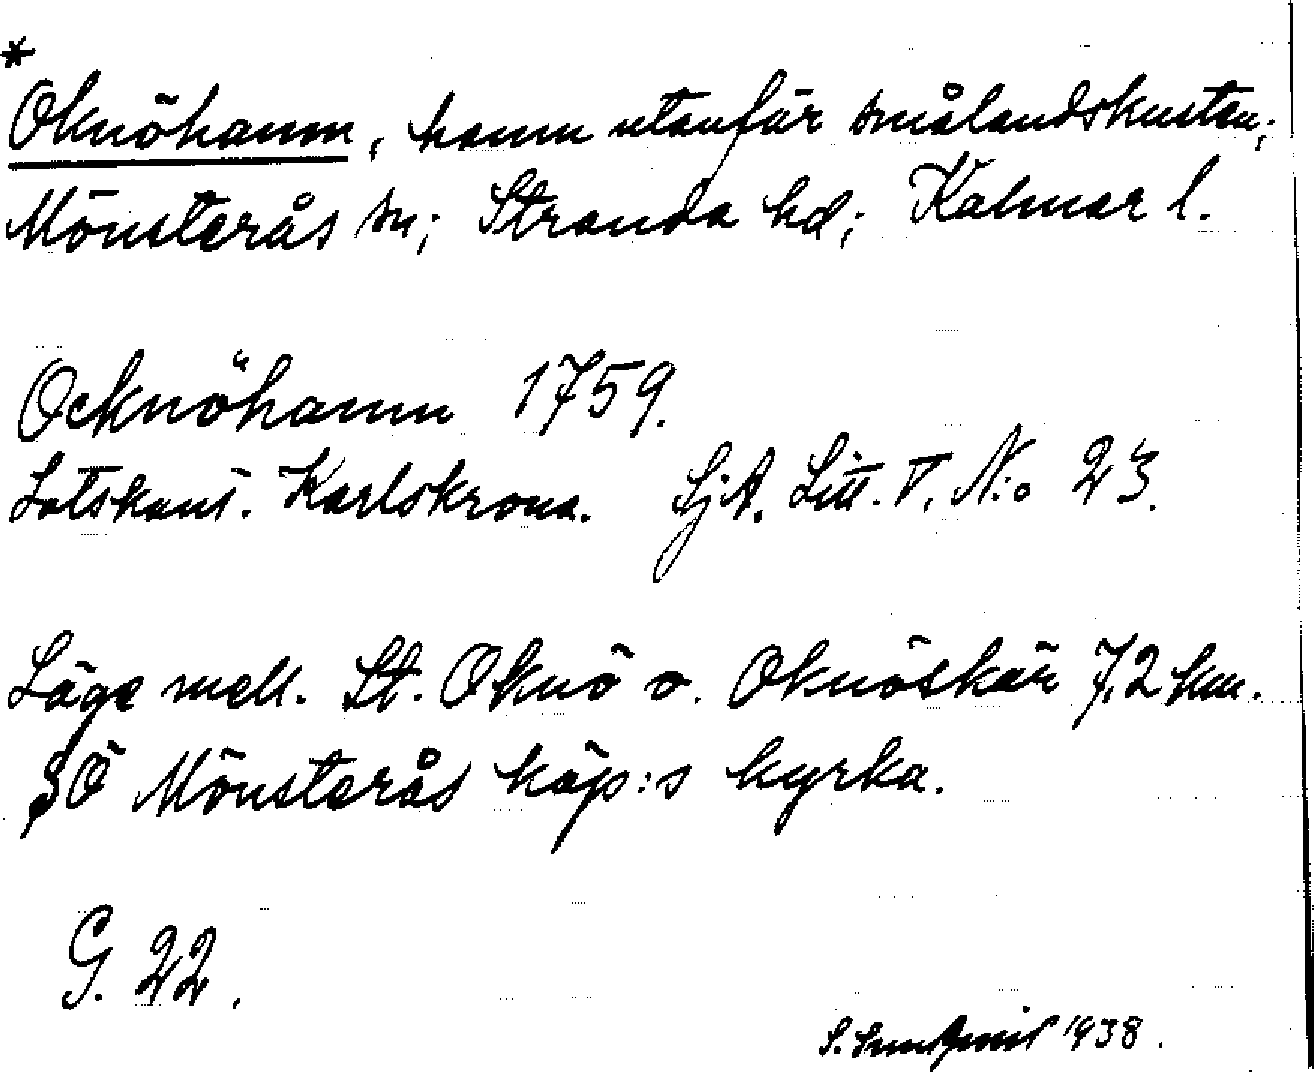 *
Oknöhamn, hamn utanför smålandskusten;
Mönsterås sn; Stranda hd; Kalmar l.
Ocknöhamn 1759.
Lotskont. Karlskrona. SjA. Litt. V. N:o 23.
Läge mell. St. Oknö o. Oknöskär 7,2 km.
SÖ Mönsterås köp:s kyrka.
G. 22.
S. 1938.